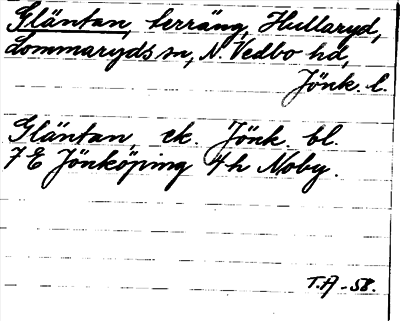 Gläntan, terräng, Hullaryd,
Lommaryds sn, N. Vedbo hd,
Jönk. l.
Gläntan, ek. Jönk. bl.
7 E Jönköping 4h Noby.
T.A -58.